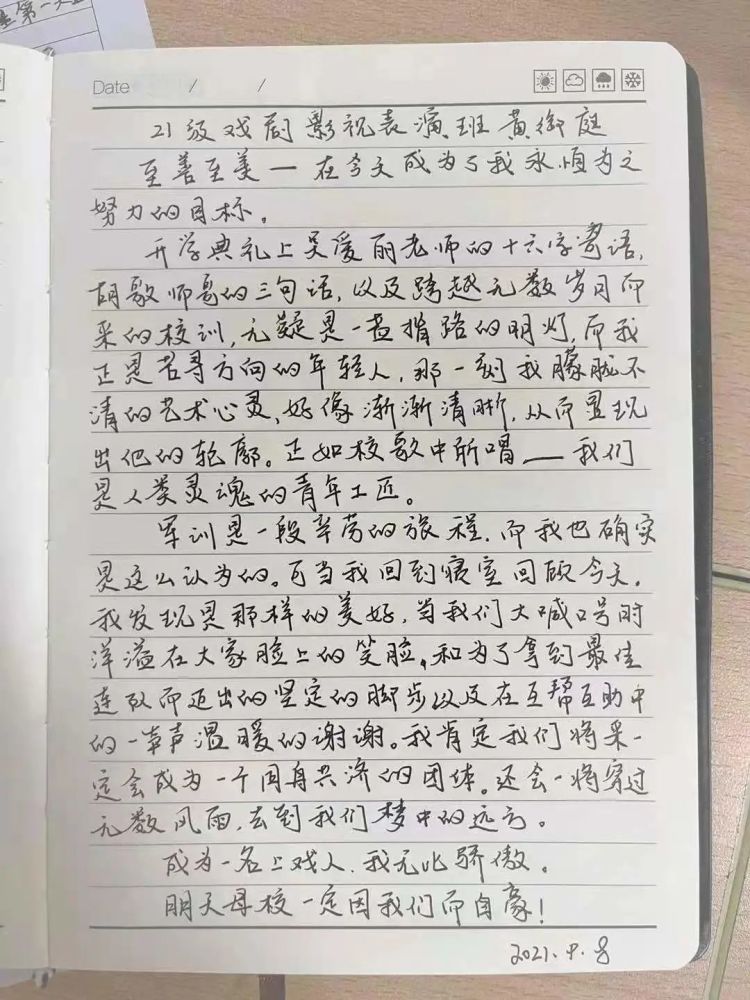 星第一
Date / /
21级戏剧影视表演班 黄衔庭
至善至美一在今天成为了我永恒为之
努力的目标。
开学典礼上吴爱丽老师的十六字寄语,
胡敬师哥的三句话,以及跨越无数岁月而
来的校训,无疑是一盏指路的明灯,而我
正是苦寻方向的年轻人,那一刻我朦胧不
清的艺术心灵,好像渐渐清晰,从而显现
出他的轮廓。正如校歌中所唱——我们
是人类灵魂的青年工匠。
军训是一段辛劳的旅程,而我也确实
是这么认为的。可当我回到寝室回顾今天,
我发现是那样的美好,当我们大喊口号时
洋溢在大家脸上的笑脸,和为了拿到最佳
连队而迈出的坚定的脚步以及在互帮互助中
的一声声温暖的谢谢。我肯定我们将来一
定会成为一个同舟共济的团体。还会一将穿过
无数风雨,去到我们梦中的远方。
成为一名上戏人,我无比骄傲。
明天母校一定因我们而自豪!
2021.9.8